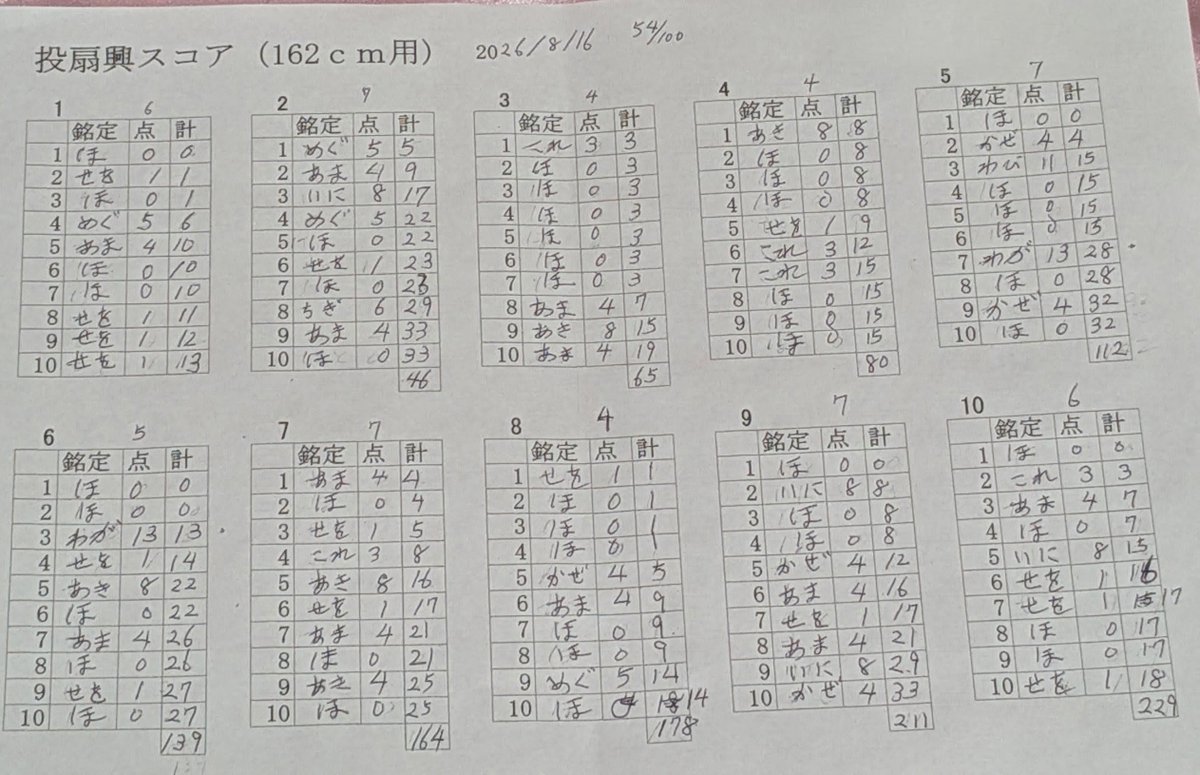 投扇興スコア（162cm用） 2026/8/16 54/100
1 6
銘定 点 計
1 ほ 0 0
2 せを 1 1
3 ほ 0 1
4 めぐ 5 6
5 あま 4 10
6 ほ 0 10
7 ほ 0 10
8 せを 1 11
9 せを 1 12
10 せを 1 13
2
銘定 点 計
1 めぐ 5 5
2 あま 4 9
3 いに 8 17
4 めぐ 5 22
5 ほ 0 22
6 せを 1 23
7 ほ 0 23
8 ちぎ 6 29
9 あま 4 33
10 ほ 0 33
46
3 4
銘定 点 計
1 これ 3 3
2 ほ 0 3
3 ほ 0 3
4 ほ 0 3
5 ほ 0 3
6 ほ 0 3
7 ほ 0 3
8 あま 4 7
9 あき 8 15
10 あま 4 19
65
4 4
銘定 点 計
1 あき 8 8
2 ほ 0 8
3 ほ 0 8
4 ほ 0 8
5 せを 1 9
6 これ 3 12
7 これ 3 15
8 ほ 0 15
9 ほ 0 15
10 ほ 0 15
80
5 7
銘定 点 計
1 ほ 0 0
2 かぜ 4 4
3 わび 11 15
4 ほ 0 15
5 ほ 0 15
6 ほ 0 15
7 わが 13 28
8 ほ 0 28
9 かぜ 4 32
10 ほ 0 32
112
6 5
銘定 点 計
1 ほ 0 0
2 ほ 0 0
3 わが 13 13
4 せを 1 14
5 あき 8 22
6 ほ 0 22
7 あま 4 26
8 ほ 0 26
9 せを 1 27
10 ほ 0 27
139
7 7
銘定 点 計
1 あま 4 4
2 ほ 0 4
3 せを 1 5
4 これ 3 8
5 あき 8 16
6 せを 1 17
7 あま 4 21
8 ほ 0 21
9 あき 4 25
10 ほ 0 25
164
8 4
銘定 点 計
1 せを 1 1
2 ほ 0 1
3 ほ 0 1
4 ほ 0 1
5 かぜ 4 5
6 あま 4 9
7 ほ 0 9
8 ほ 0 9
9 めぐ 5 14
10 ほ 0 14
178
9 7
銘定 点 計
1 ほ 0 0
2 いに 8 8
3 ほ 0 8
4 ほ 0 8
5 かぜ 4 12
6 あま 4 16
7 せを 1 17
8 あま 4 21
9 いに 8 29
10 かぜ 4 33
211
10 6
銘定 点 計
1 ほ 0 0
2 これ 3 3
3 あま 4 7
4 ほ 0 7
5 いに 8 15
6 せを 1 16
7 せを 1 17
8 ほ 0 17
9 ほ 0 17
10 せを 1 18
229